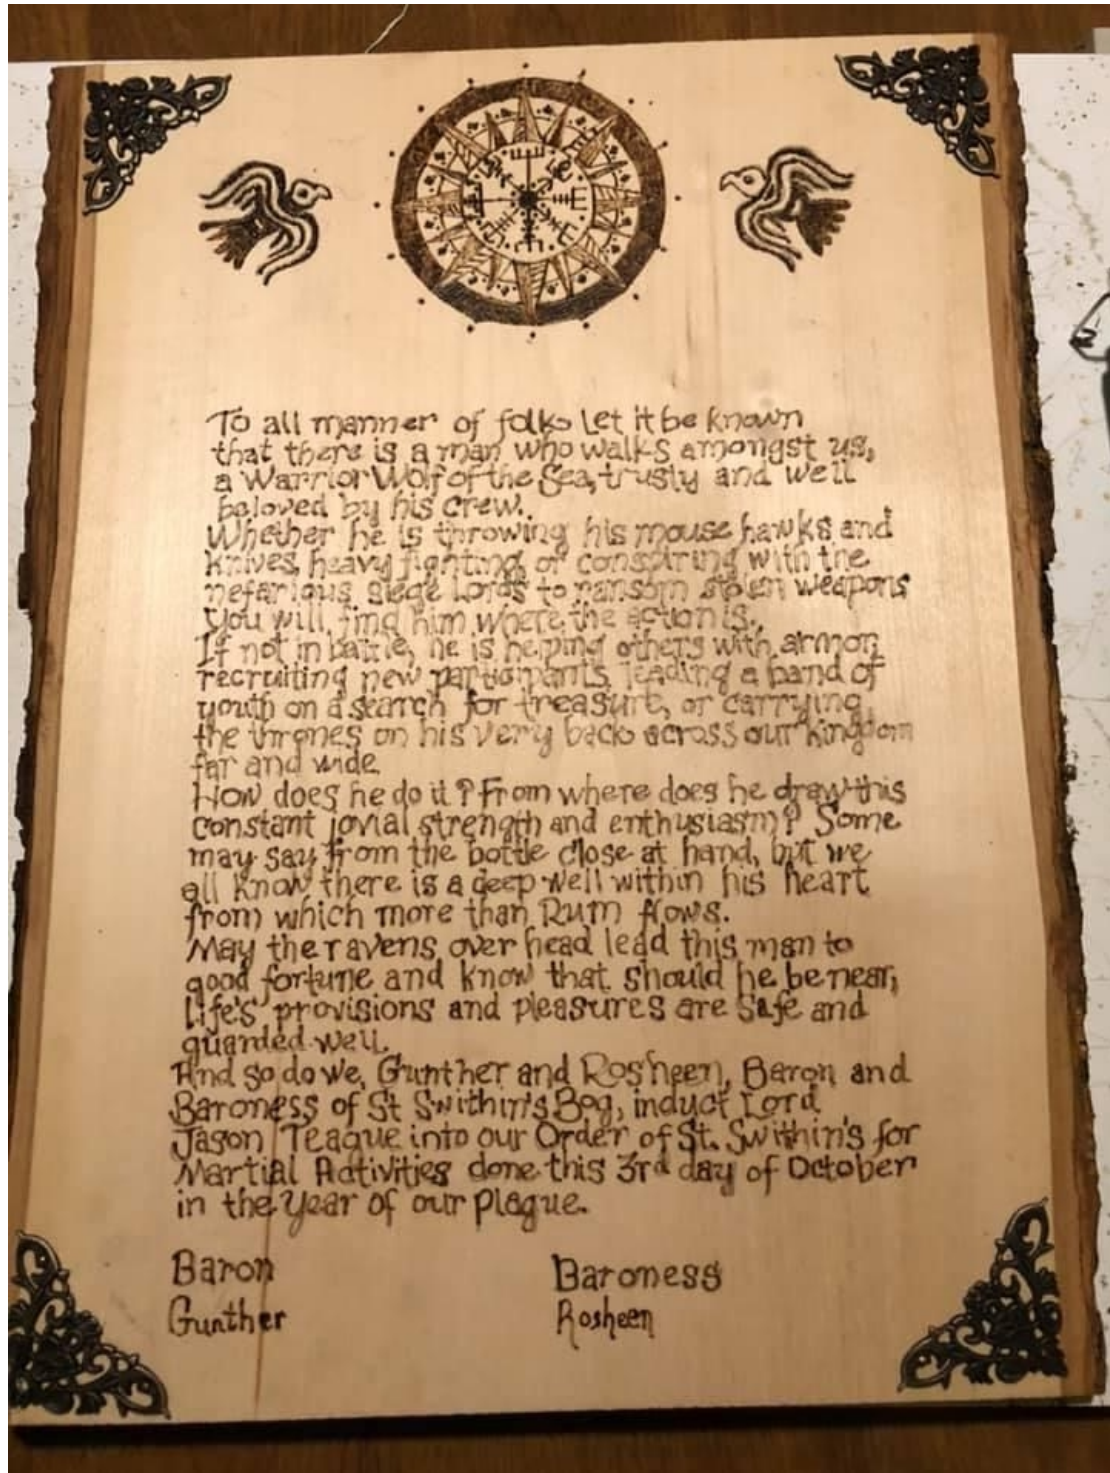 To all manner of folks Let it be known
that there is a man who walks amongst us,
a Warrior Wolf of the Sea, trusty and well
beloved by his crew.
Whether he is throwing his mouse hawks and
knives, heavy fighting, or conspiring with the
nefarious siege Lords to ransom stolen weapons
you will find him where the action is.
If not in battle, he is helping others with armor,
recruiting new participants, leading a band of
youth on a search for treasure, or carrying
the thrones on his very back across our kingdom
far and wide.
How does he do it? From where does he draw this
constant jovial strength and enthusiasm? Some
may say from the bottle close at hand, but we
all know there is a deep well within his heart
from which more than Rum flows.
May the ravens over head lead this man to
good fortune and know that should he be near,
life's provisions and pleasures are safe and
guarded well.
And so do we, Gunther and Rosheen, Baron and
Baroness of St Swithin's Bog, induct Lord
Jason Teague into our Order of St. Swithin's for
Martial Activities done this 3rd day of October
in the Year of our Plague.
Baron Baroness
Gunther Rosheen